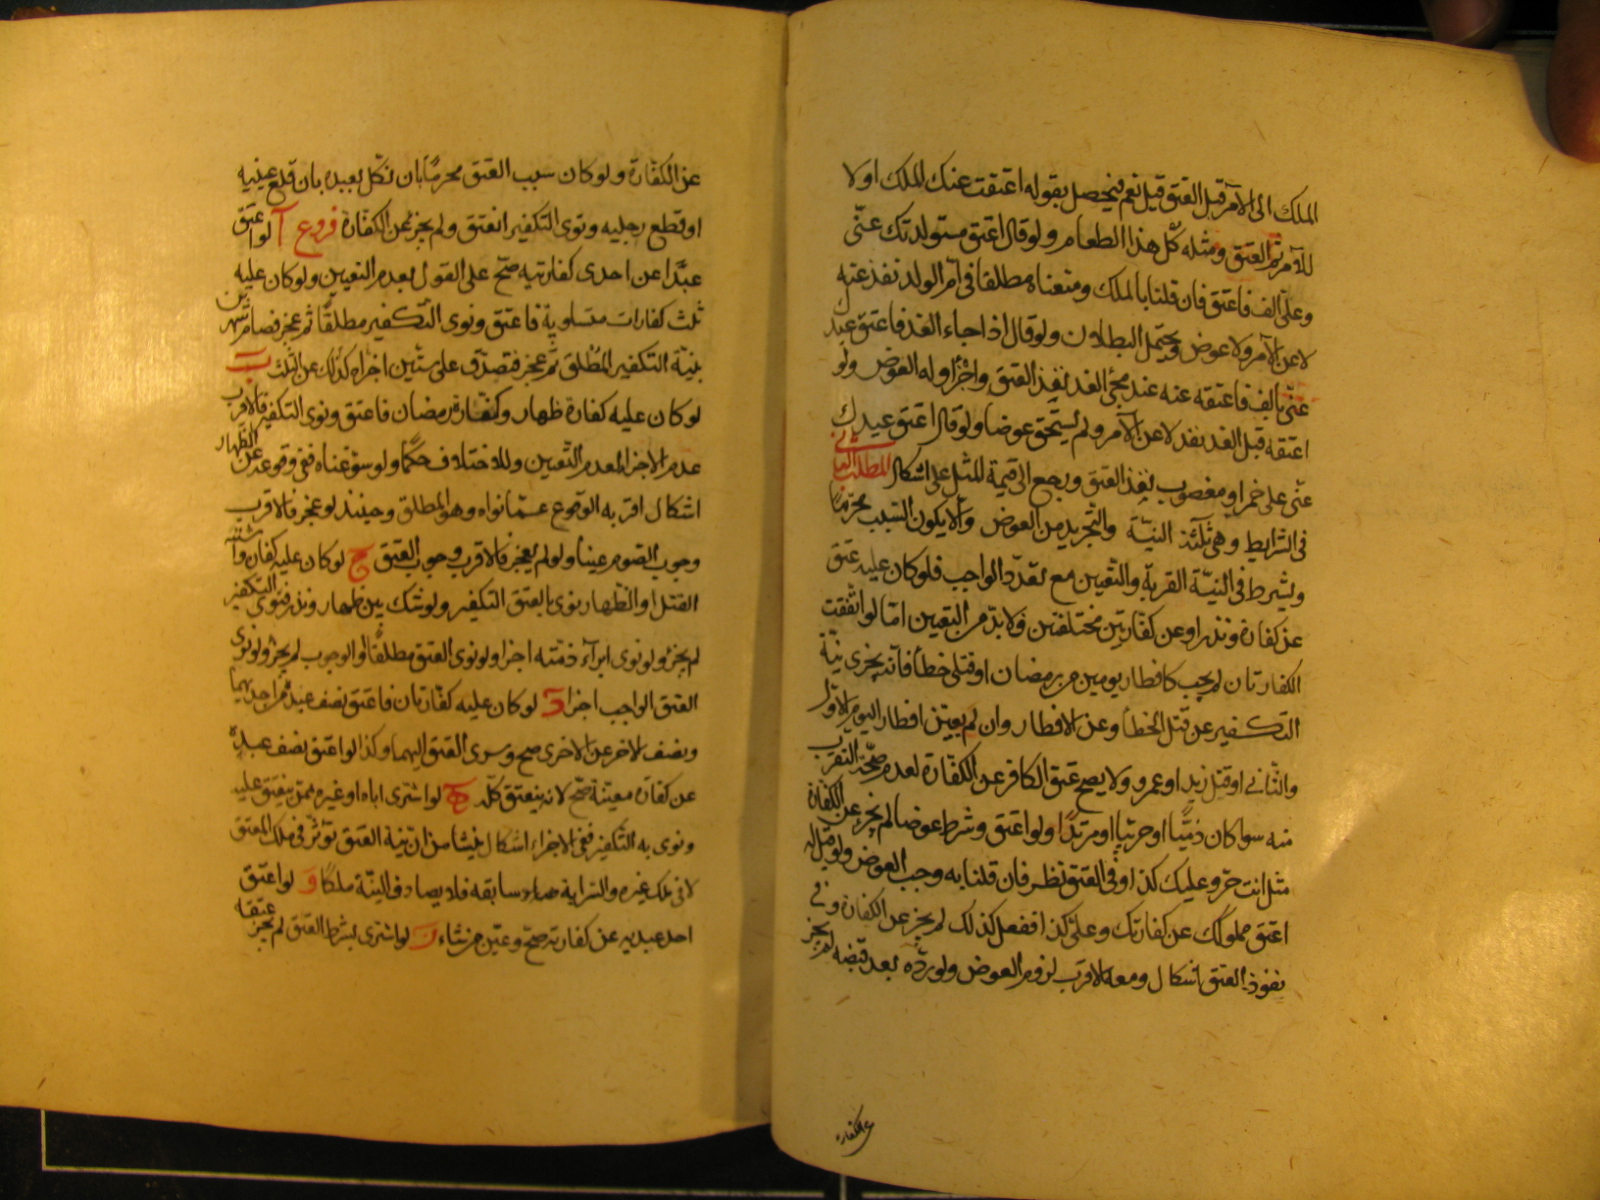 الملك الى الآمر قبل العتق قيل نعم فيحصل بقوله اعتقت عنك الملك اولا
للآمر ثم العتق ومثله كل هذا الطعام ولو قال اعتق مستولدتك عنّي
وعليّ الف فاعتق فان قلنا بالملك ومنعناه مطلقا في امّ الولد نفذ عتقه
لا عن الآمر ولا عوض ويحتمل البطلان ولو قال اذا جاء الغد فاعتق عبدك
عنّي بالف فاعتقه عنه عند مجئ الغد نفذ العتق واجزأ وله العوض ولو
اعتقه قبل الغد نفذ لا عن الآمر ولم يستحق عوضا ولو قال اعتق عبدك
عنّي على خمر او مغصوب نفذ العتق ورجع الى قيمة المثل على اشكال المطلب الثاني
في الشرايط وهي ثلثة النيّة والتجريد من العوض والّا يكون السبب محرّماً
ويشترط في النيّة القربة والتعيين مع تعدّد الواجب فلو كان عليه عتق
عن كفارة ونذر او عن كفّارتين مختلفتين فلا بدّ من التعيين امّا لو اتفقت
الكفارتان لم يجب كافطار يومين من رمضان او قتلى خطأ فانّه يجزي نيّة
التكفير عن قتل الخطأ وعن الافطار وان لم يعيّن افطار اليوم الاوّل
والثاني او قتل زيد او عمرو ولا يصح عتق الكافر عن الكفّارة لعدم صحّة التقرب
منه سوا كان ذمّيّا او حربيا او مرتدّا ولو اعتق وشرط عوضا لم يجز عن الكفّارة
مثل انت حرّ وعليك كذا وفي العتق نظر فان قلنا به وجب العوض ولو قيل له
اعتق مملوكك عن كفارتك وعليّ كذا ففعل كذلك لم يجز عن الكفارة وفي
نفوذ العتق اشكال ومعه الاقرب لزوم العوض ولو ردّه بعد قبضه لم يجز
عن الكفارة
عن الكفّارة ولو كان سبب العتق محرّماً بان نكّل بعبده بان قلع عينيه
او قطع رجليه ونوى التكفير انعتق ولم يجز عن الكفّارة فروع آ لو اعتق
عبدًا عن احدى كفارتيه صحّ على القول بعدم التعيين ولو كان عليه
ثلث كفارات متساوية فاعتق ونوى التكفير مطلقًا ثم عجز فصام شهرين
بنيّة التكفير المطلق ثم عجز فتصدّق على ستّين اجزاه كذلك عن الثلث ب
لو كان عليه كفارة ظهار وكفّارة رمضان فاعتق ونوى التكفير فالاقرب
عدم الاجزاء لعدم التعيين وللاختلاف حكمًا ولو سوّغناه ففي وقوعه عن الظهار
اشكال اقربه الوقوع عمّا نواه وهو المطلق وحينئذ لو عجز فالاقرب
وجوب الصّوم عينا ولو لم يعجز فالاقرب وجوب العتق ج لو كان عليه كفارة واشتبه
القتل او الظهار نوى بالعتق التكفير ولو شك بين ظهار ونذر فنوى التكفير
لم يجز ولو نوى ابراء ذمّته اجزا ولو نوى العتق مطلقًا او الوجوب لم يجز ولو نوى
العتق الواجب اجزا د لو كان عليه كفّارتان فاعتق نصف عبد عن احديهما
ونصف الاخر عن الاخرى صح وسرى العتق اليهما وكذا لو اعتق نصف عبده
عن كفارة معيّنة صحّ لانه ينعتق كلّه ه لو اشترى اباه او غيره ممّن ينعتق عليه
ونوى به التكفير ففي الاجزاء اشكال ينشا من ان نيّة العتق تؤثّر في ملك المعتق
لا في ملك غيره والسراية سابقه فلا يصادف النيّة ملكًا و لو اعتق
احد عبديه عن كفارته صحّ وعيّن من شاء ز لو اشترى بشرط العتق لم يجز عتقه